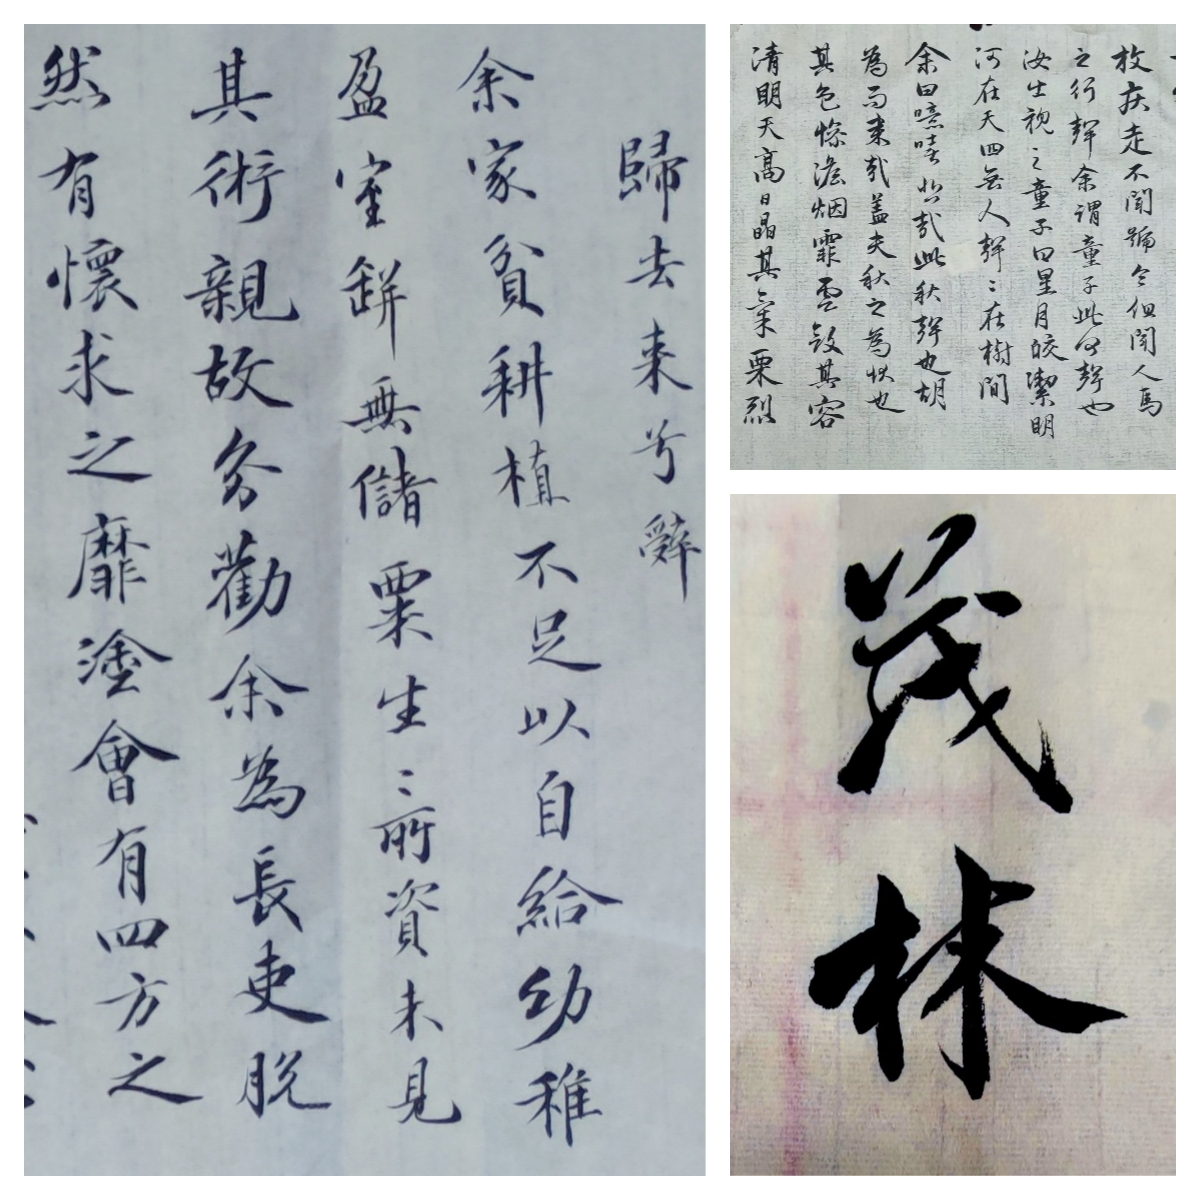 歸去来兮辭
余家貧耕植不足以自給幼稚
盈室缾無儲粟生〻所資未見
其術親故多勸余為長吏脱
然有懷求之靡塗會有四方之
枚疾走不聞號令但聞人馬
之行聲余謂童子此何聲也
汝出視之童子曰星月皎潔明
河在天四無人聲〻在樹間
余曰噫嘻悲哉此秋聲也胡
為而来哉蓋夫秋之為狀也
其色惨澹烟霏雲斂其容
清明天高日晶其氣栗烈
茂林